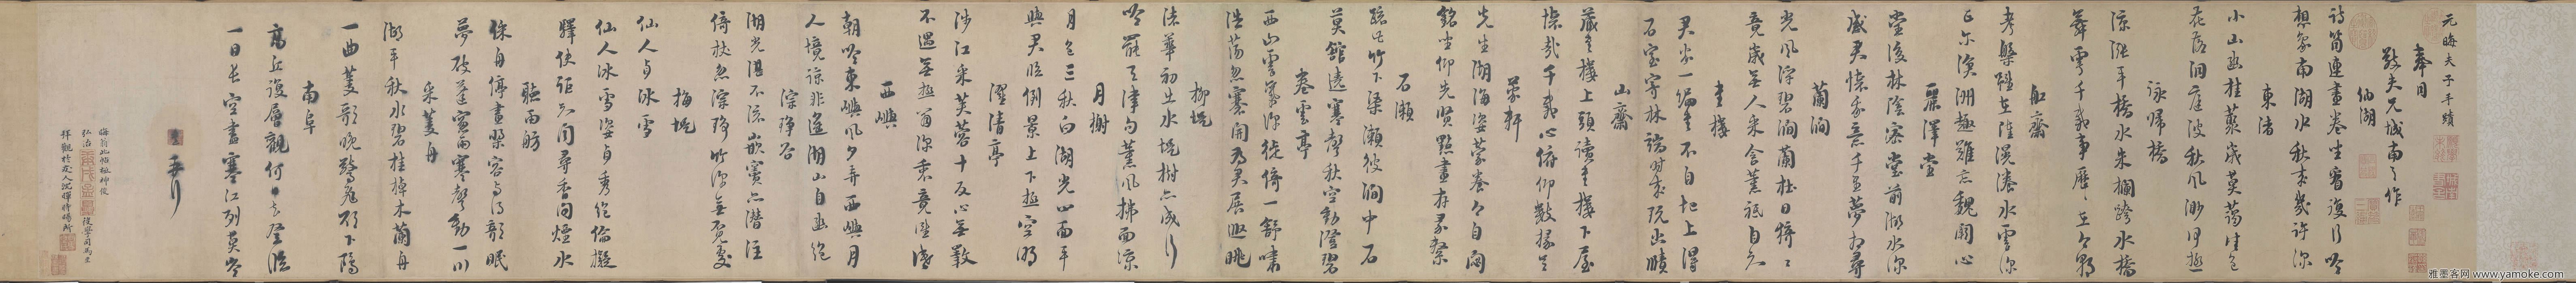 元晦夫子手蹟
奉同
敬夫兄城南之作
納湖
詩筒連畫卷坐看復行吟
想象南湖水秋來幾許深
東渚
小山幽桂叢歲莫藹佳色
花落洞庭波秋風渺何極
詠歸橋
綠漲平橋水朱欄跨水橋
舞雩千載事歷歷在今朝
船齋
考槃雖在陸滉瀁水雲深
正爾滄洲趣難忘魏闕心
麗澤堂
堂後林陰密堂前湖水深
感君懷我意千里夢相尋
蘭澗
光風浮碧澗蘭杜日猗猗
竟歲無人采含薰祗自知
書樓
君家一編書不自圯上得
石室寄林端時來玩幽賾
山齋
藏書樓上頭讀書樓下屋
懷哉千載心俯仰數椽足
蒙軒
先生湖海姿蒙養今自閟
銘坐仰先賢點畫存彖繫
石瀨
疏此竹下渠瀨彼澗中石
莫館遶寒聲秋空動澄碧
卷雲亭
西山雲氣深徙倚一舒嘯
浩蕩忽褰開為君展遐眺
柳堤
渚華初出水堤樹亦成行
吟罷天津句薰風拂面涼
月榭
月色三秋白湖光四面平
與君臨倒景上下極空明
濯清亭
涉江采芙蓉十反心無斁
不遇無極翁深衷竟誰識
西嶼
朝吟東嶼風夕弄西嶼月
人境諒非遙湖山自幽絕
淙琤谷
湖光湛不流嵌竇亦潛注
倚杖忽淙琤竹深無覓處
梅堤
仙人貞冰雪
仙人冰雪姿貞秀絕倫擬
驛使詎知聞尋香問煙水
聽雨舫
綵舟停畫槳容與得欹眠
夢破蓬窗雨寒聲動一川
采菱舟
湖平秋水碧桂棹木蘭舟
一曲菱歌晚驚飛欲下鷗
南阜
高丘復層觀何日去登臨
一目長空盡寒江列莫岑
晦翁此帖極神俊
弘治
後學司馬垔
拜觀於友人沈暉時暘所
雅墨客网 www.yamoke.com